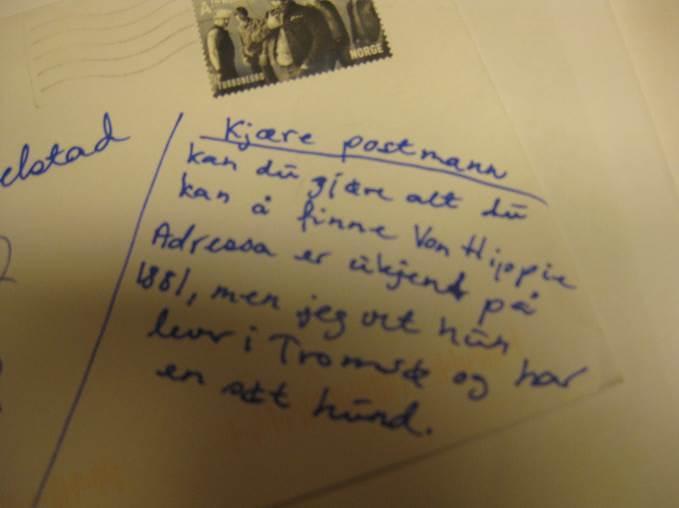 A
TURBONEGRO
NORGE
elstad
Kjære postmann
kan du gjøre alt du
kan å finne Von Hippie
Adressa er ukjendt på
1881, men jeg vet hun
levr i Tromsø og har
en søt hund.